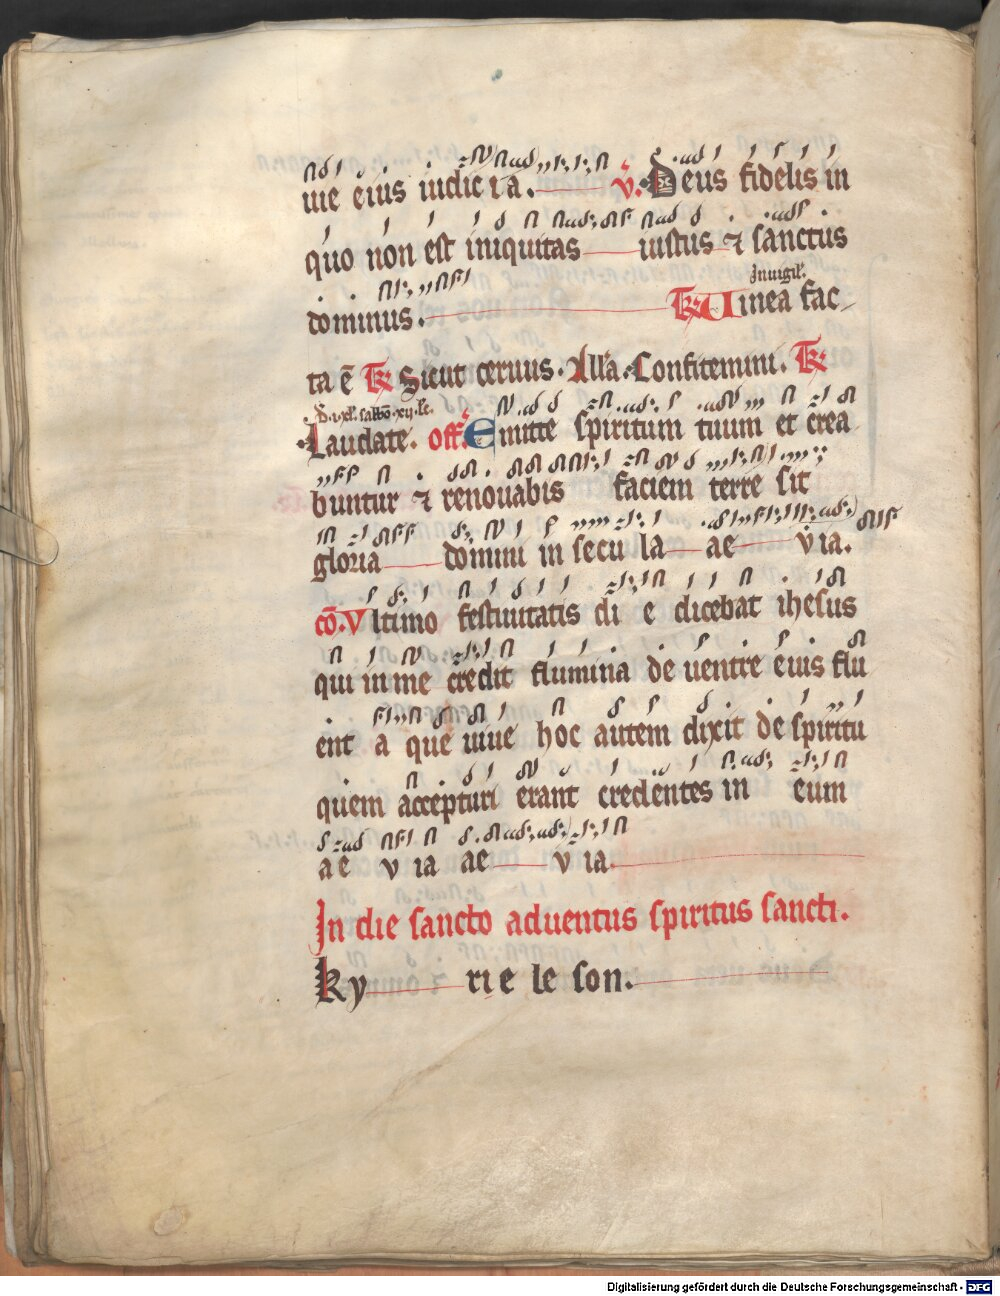 uie eius iudic ia. v̄. Deus fidelis in
quo non est iniquitas iustus ⁊ sanctus
In uigil.
dominus. R Uinea fac
ta ē R Sicut ceruus. Allā. Confitemini. R
Laudate. off. Emitte spiritum tuum et crea
buntur ⁊ renouabis faciem terre sit
gloria domini in secu la ae v ia.
cō. Vltimo festiuitatis di e dicebat ihesus
qui in me credit flumina de uentre eius flu
ent a que uiue hoc autem dixit de spiritu
quem accepturi erant credentes in eum
ae v ia ae v ia.
In die sancto aduentus spiritus sancti.
Ky rie le son.
Digitalisierung gefördert durch die Deutsche Forschungsgemeinschaft - DFG